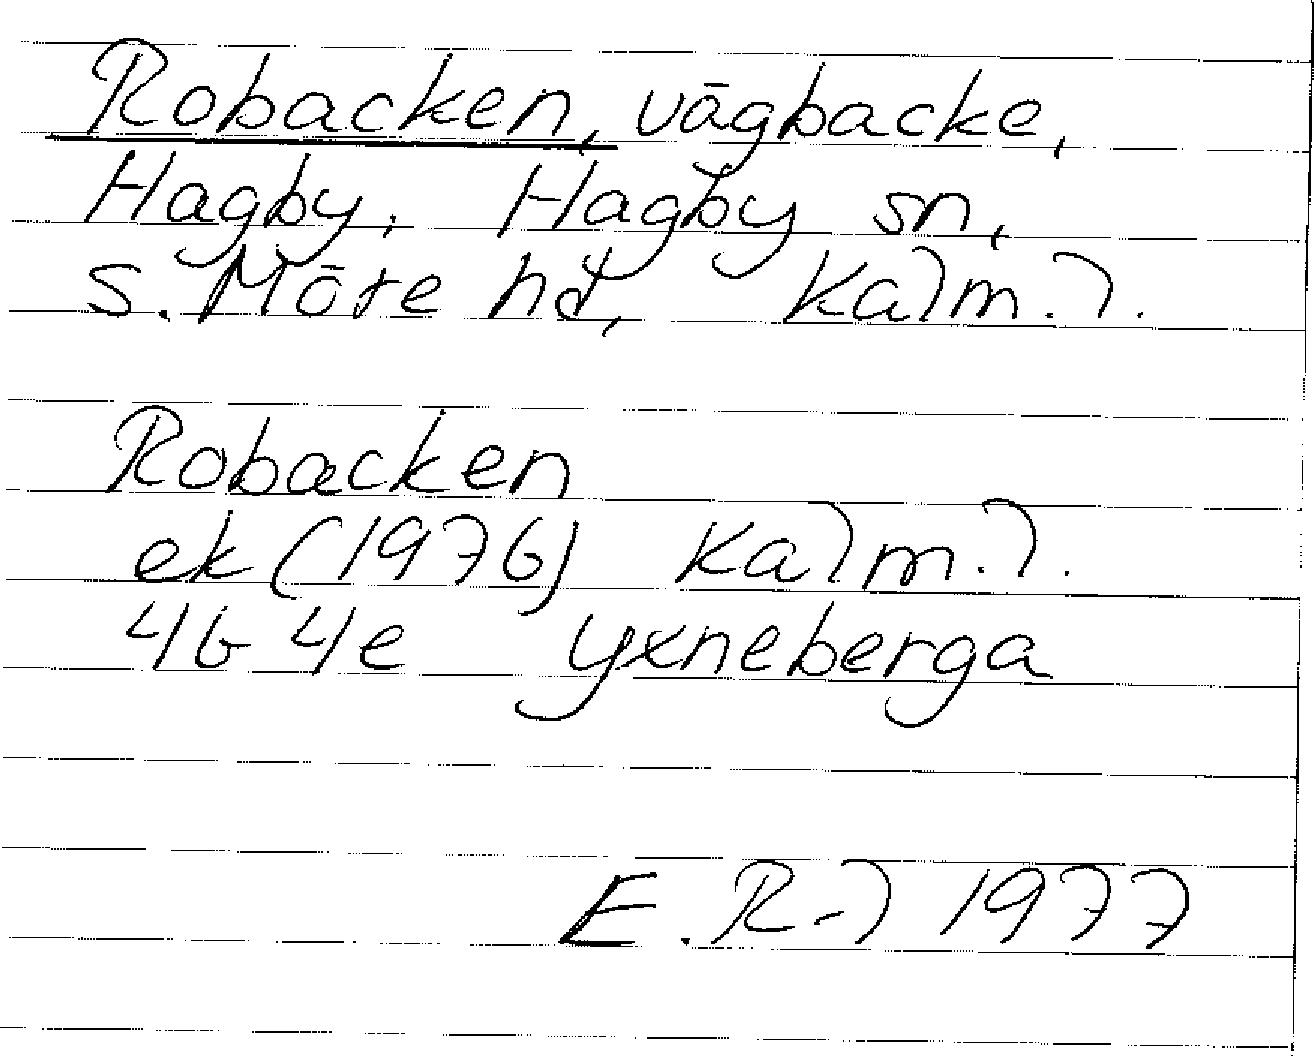 Robacken, vägbacke,
Hagby, Hagby sn,
S. Möre hd, Kalm. l.
Robacken
ek (1976) Kalm. l.
4G 4e Yxneberga
E. R-l 1977